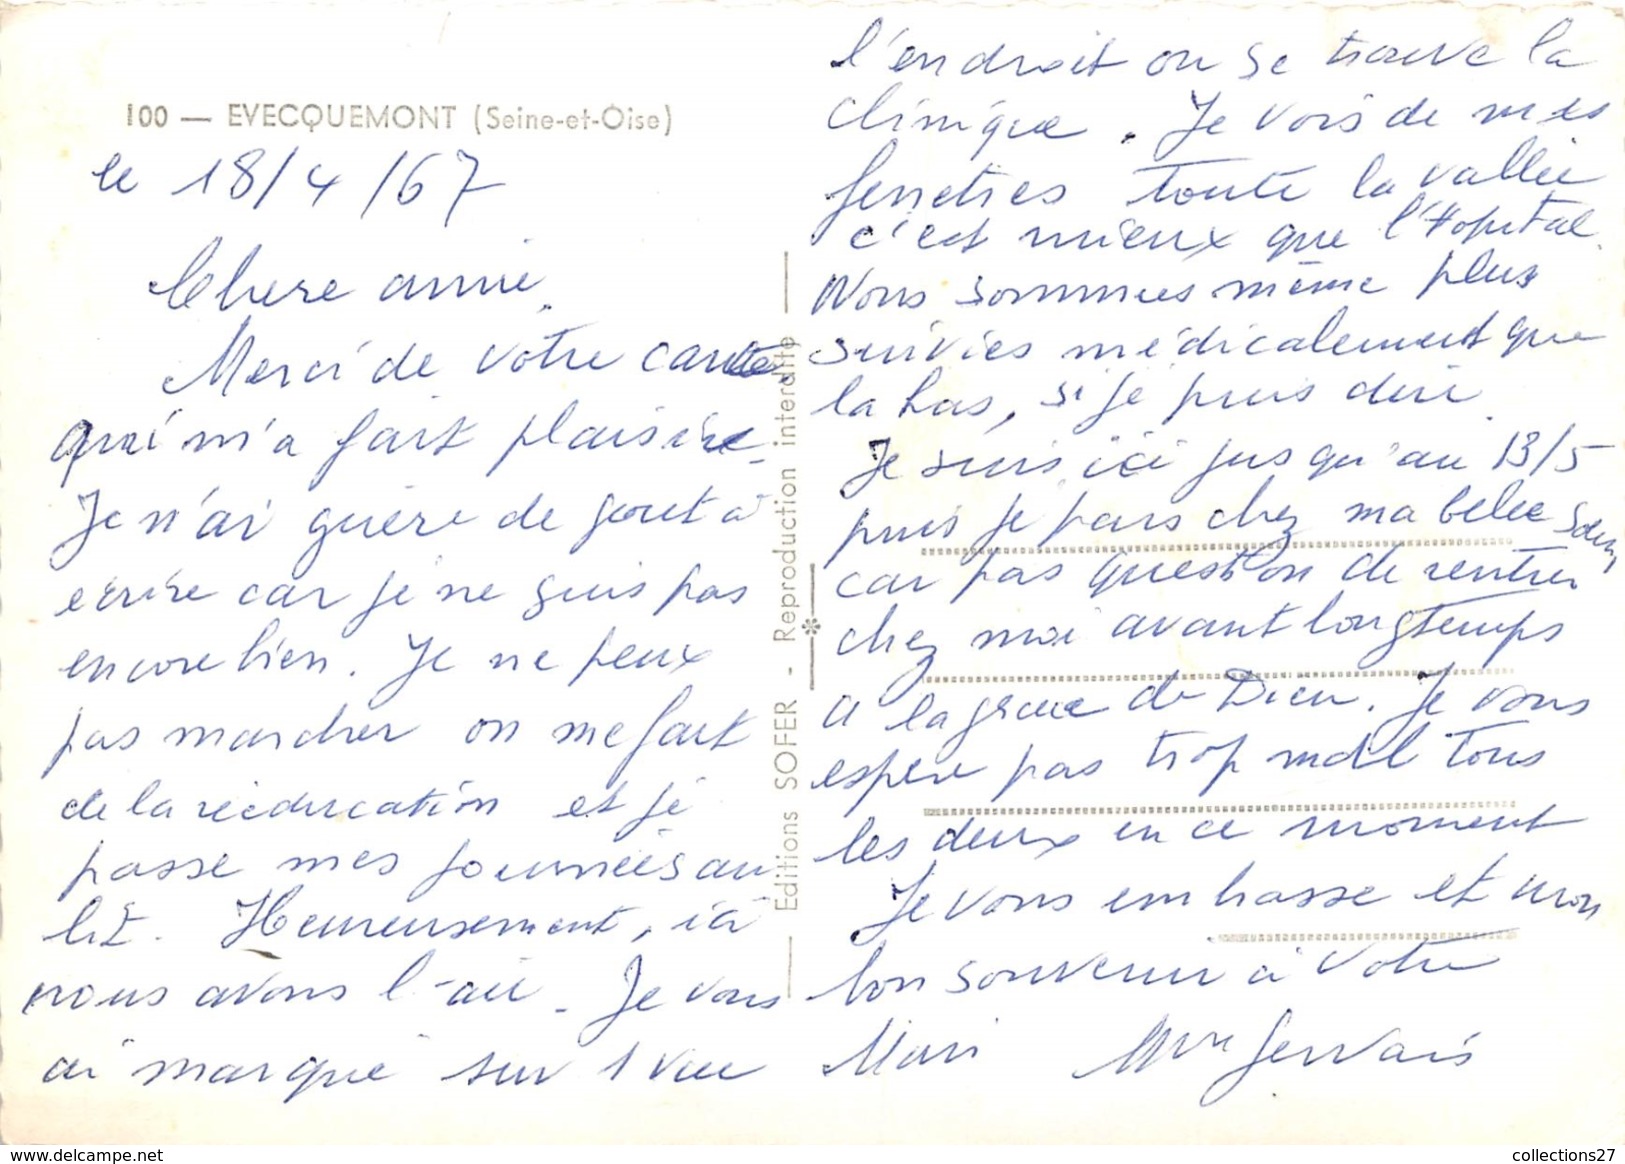 100 — EVECQUEMONT (Seine-et-Oise)
le 18/4/67
Chere amie.
Merci de votre carte
qui m'a fait plaisir.
Je n'ai guère de gout à
ecrire car je ne suis pas
encore bien. Je ne peux
pas marcher on me fait
de la rééducation et je
passe mes journées au
lit. Heureusement, ici
nous avons l'air. Je vous
ai marqué sur 1 vue
l'endroit ou se trouve la
clinique. Je vois de mes
fenetres toute la vallée
c'est mieux que l'Hopital.
Nous sommes même plus
suivies médicalement que
la bas, si je puis dire.
Je suis ici jusqu'au 13/5
puis je pars chez ma belle soeur
car pas question de rentrer
chez moi avant longtemps
A la grace de Dieu. Je vous
espere pas trop mal tous
les deux en ce moment
Je vous embrasse et mon
bon souvenir à votre
Mari Mme Gervais
Editions SOFER - Reproduction interdite
collections27